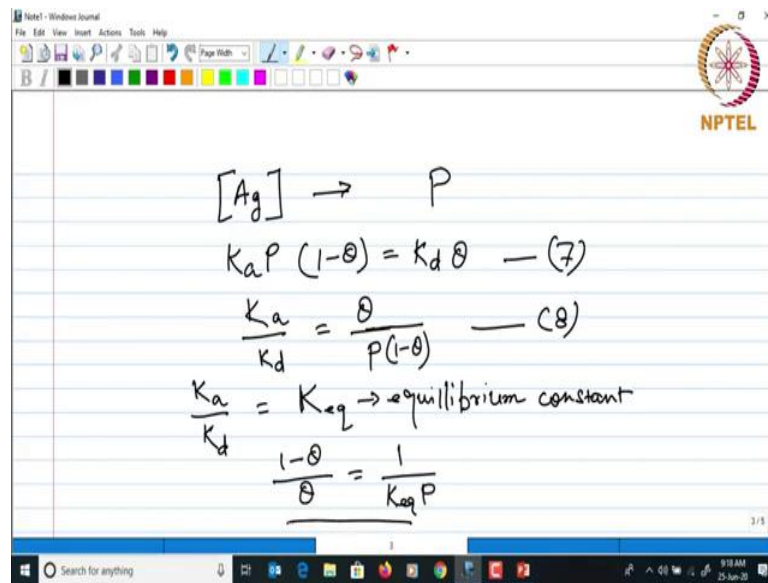 Note1 - Windows Journal
File Edit View Insert Actions Tools Help
Page Width
B I
NPTEL
[Ag] → P
KaP (1-θ) = Kd θ — (7)
Ka/Kd = θ/P(1-θ) — (8)
Ka/Kd = Keq → equillibrium constant
1-θ/θ = 1/Keq P
3/5
3
Search for anything
9:18 AM
25-Jun-20